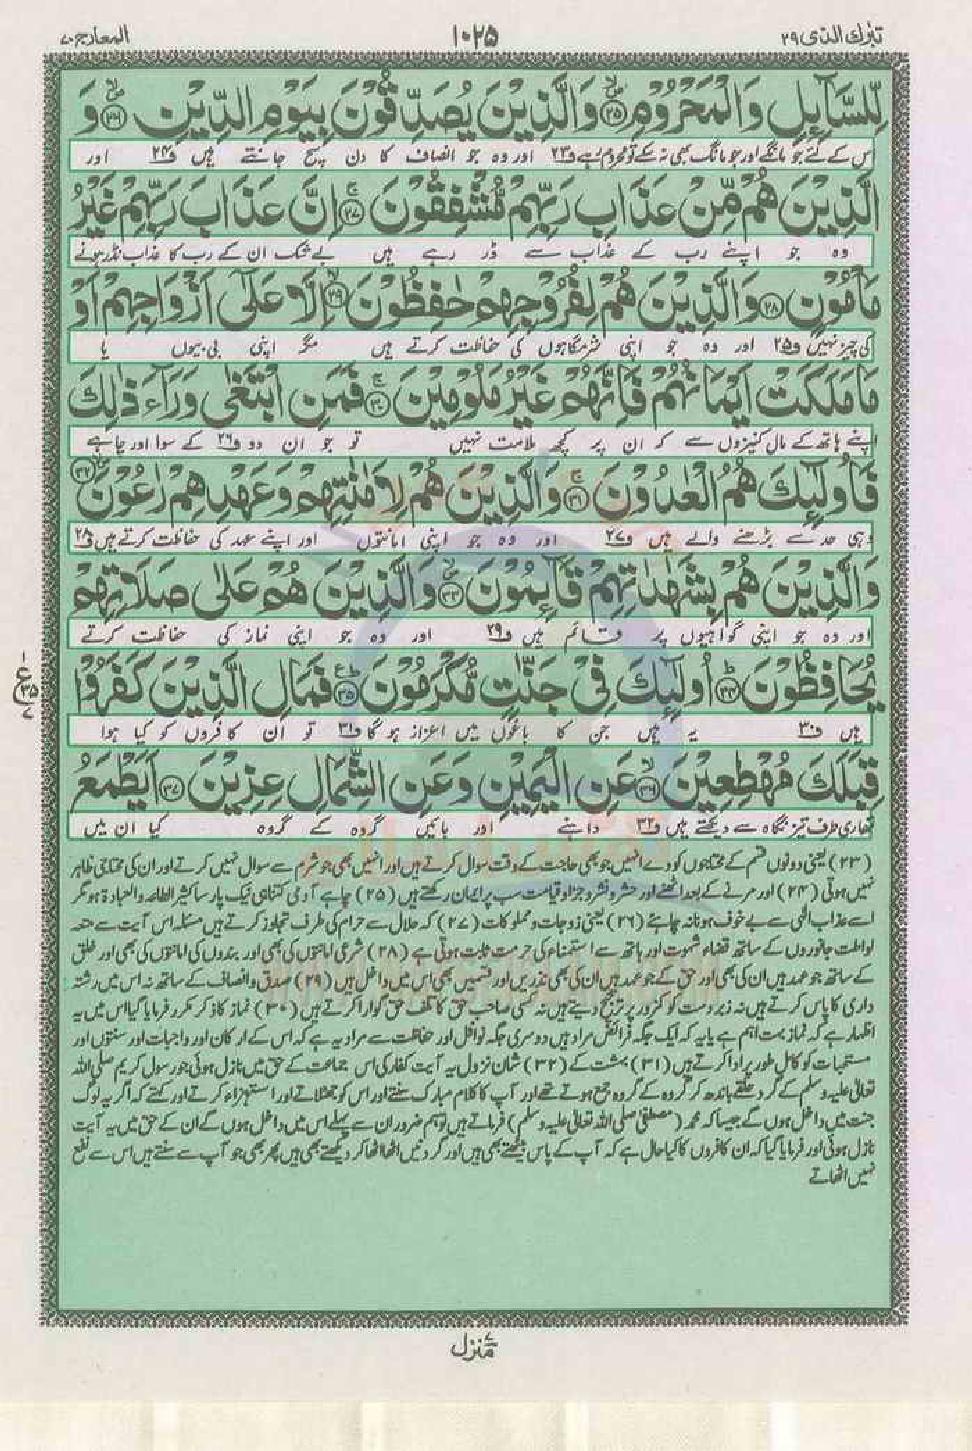 تبٰرك الذی ۲۹
۱۰۲۵
المعارج ۷۰
لِّلسَّآىِٕلِ وَالْمَحْرُوْمِ ۲۵ وَالَّذِیْنَ یُصَدِّقُوْنَ بِیَوْمِ الدِّیْنِ ۲۶ وَ
اس کے لئے جو مانگے اور جو مانگ بھی نہ سکے تو محروم رہے ف۲۳ اور وہ جو انصاف کا دن سچ جانتے ہیں ف۲۴ اور
الَّذِیْنَ هُمْ مِّنْ عَذَابِ رَبِّهِمْ مُّشْفِقُوْنَ ۲۷ اِنَّ عَذَابَ رَبِّهِمْ غَیْرُ
وہ جو اپنے رب کے عذاب سے ڈر رہے ہیں بے شک ان کے رب کا عذاب نڈر ہونے
مَاْمُوْنٍ ۲۸ وَالَّذِیْنَ هُمْ لِفُرُوْجِهِمْ حٰفِظُوْنَ ۲۹ اِلَّا عَلٰۤی اَزْوَاجِهِمْ اَوْ
کی چیز نہیں ف۲۵ اور وہ جو اپنی شرمگاہوں کی حفاظت کرتے ہیں مگر اپنی بی بیوں یا
مَا مَلَكَتْ اَیْمَانُهُمْ فَاِنَّهُمْ غَیْرُ مَلُوْمِیْنَ ۳۰ فَمَنِ ابْتَغٰی وَرَآءَ ذٰلِكَ
اپنے ہاتھ کے مال کنیزوں سے کہ ان پر کچھ ملامت نہیں تو جو ان دو ف۲۶ کے سوا اور چاہے
فَاُولٰٓىِٕكَ هُمُ الْعٰدُوْنَ ۳۱ وَالَّذِیْنَ هُمْ لِاَمٰنٰتِهِمْ وَعَهْدِهِمْ رٰعُوْنَ ۳۲
وہی حد سے بڑھنے والے ہیں ف۲۷ اور وہ جو اپنی امانتوں اور اپنے عہد کی حفاظت کرتے ہیں ف۲۸
وَالَّذِیْنَ هُمْ بِشَهٰدٰتِهِمْ قَآىِٕمُوْنَ ۳۳ وَالَّذِیْنَ هُمْ عَلٰی صَلَاتِهِمْ
اور وہ جو اپنی گواہیوں پر قائم ہیں ف۲۹ اور وہ جو اپنی نماز کی حفاظت کرتے
یُحَافِظُوْنَ ۳۴ اُولٰٓىِٕكَ فِیْ جَنّٰتٍ مُّكْرَمُوْنَ ۳۵ فَمَالِ الَّذِیْنَ كَفَرُوْا
ہیں ف۳۰ یہ ہیں جن کا باغوں میں اعزاز ہو گا ف۳۱ تو ان کافروں کو کیا ہوا
قِبَلَكَ مُهْطِعِیْنَ ۳۶ عَنِ الْیَمِیْنِ وَعَنِ الشِّمَالِ عِزِیْنَ ۳۷ اَیَطْمَعُ
تمہاری طرف تیز نگاہ سے دیکھتے ہیں ف۳۲ داہنے اور بائیں گروہ کے گروہ کیا ان میں
(۲۳) یعنی دونوں قسم کے محتاجوں کو دے انہیں جو بھی حاجت کے وقت سوال کرتے ہیں اور انہیں بھی جو شرم سے سوال نہیں کرتے اور ان کی محتاجی ظاہر
نہیں ہوتی (۲۴) اور مرنے کے بعد اٹھنے اور حشر و نشر و جزا و قیامت سب پر ایمان رکھتے ہیں (۲۵) چاہے آدمی کتنا ہی نیک پارسا کثیر الطاعۃ والعبادۃ ہو مگر
اسے عذاب الٰہی سے بے خوف ہونا نہ چاہئے (۲۶) یعنی زوجات و مملوکات (۲۷) کہ حلال سے حرام کی طرف تجاوز کرتے ہیں مسئلہ اس آیت سے متعہ
لواطت جانوروں کے ساتھ قضاء شہوت اور ہاتھ سے استمناء کی حرمت ثابت ہوتی ہے (۲۸) شرعی امانتوں کی بھی اور بندوں کی امانتوں کی بھی اور خلق
کے ساتھ جو عہد ہیں ان کی بھی اور حق کے جو عہد ہیں ان کی بھی نذریں اور قسمیں بھی اس میں داخل ہیں (۲۹) صدق و انصاف کے ساتھ نہ اس میں رشتہ
داری کا پاس کرتے ہیں نہ زبردست کو کمزور پر ترجیح دیتے ہیں نہ کسی صاحب حق کا تلف حق گوارا کرتے ہیں (۳۰) نماز کا ذکر مکرر فرمایا گیا اس میں یہ
اظہار ہے کہ نماز بہت اہم ہے یا یہ کہ ایک جگہ فرائض مراد ہیں دوسری جگہ نوافل اور حفاظت سے مراد یہ ہے کہ اس کے ارکان اور واجبات اور سنتوں اور
مستحبات کو کامل طور پر ادا کرتے ہیں (۳۱) بہشت کے (۳۲) شان نزول یہ آیت کفار کی اس جماعت کے حق میں نازل ہوئی جو رسول کریم صلی اللہ
تعالیٰ علیہ وسلم کے گرد حلقے باندھ کر گروہ کے گروہ جمع ہوتے تھے اور آپ کا کلام مبارک سنتے اور اس کو جھٹلاتے اور استہزاء کرتے اور کہتے کہ اگر یہ لوگ
جنت میں داخل ہوں گے جیسا کہ محمد (مصطفی صلی اللہ تعالیٰ علیہ وسلم) فرماتے ہیں تو ہم ضرور ان سے پہلے اس میں داخل ہوں گے ان کے حق میں یہ آیت
نازل ہوئی اور فرمایا گیا کہ ان کافروں کا کیا حال ہے کہ آپ کے پاس بیٹھتے بھی ہیں اور گردنیں اٹھا اٹھا کر دیکھتے بھی ہیں پھر بھی جو آپ سے سنتے ہیں اس سے نفع
نہیں اٹھاتے
منزل ۷